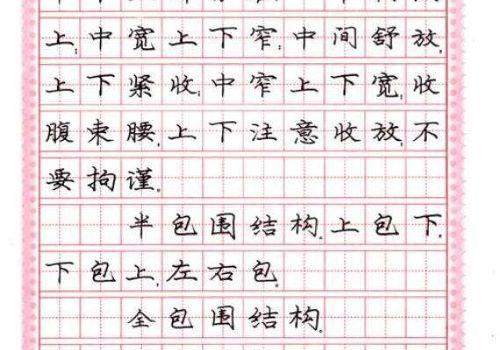 上,中宽上下窄,中间舒放,
上下紧收,中窄上下宽,收
腹束腰,上下注意收放,不
要拘谨。
半包围结构,上包下,
下包上,左右包。
全包围结构。